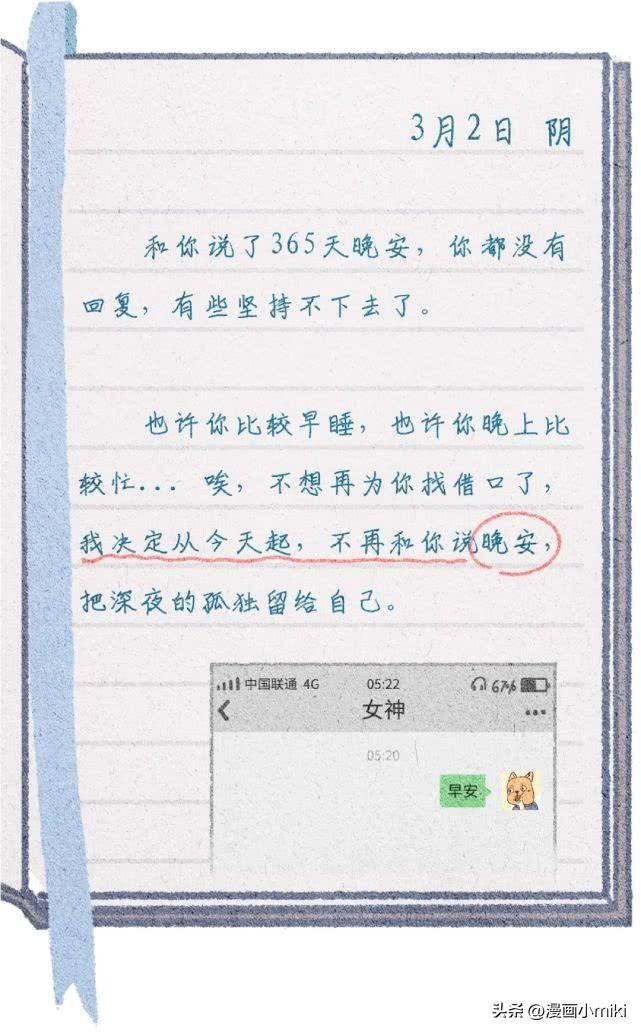 3月2日 阴
和你说了365天晚安，你都没有
回复，有些坚持不下去了。
也许你比较早睡，也许你晚上比
较忙... 唉，不想再为你找借口了，
我决定从今天起，不再和你说晚安，
把深夜的孤独留给自己。
中国联通 4G 05:22 67%
女神
05:20
早安
头条 @漫画小miki